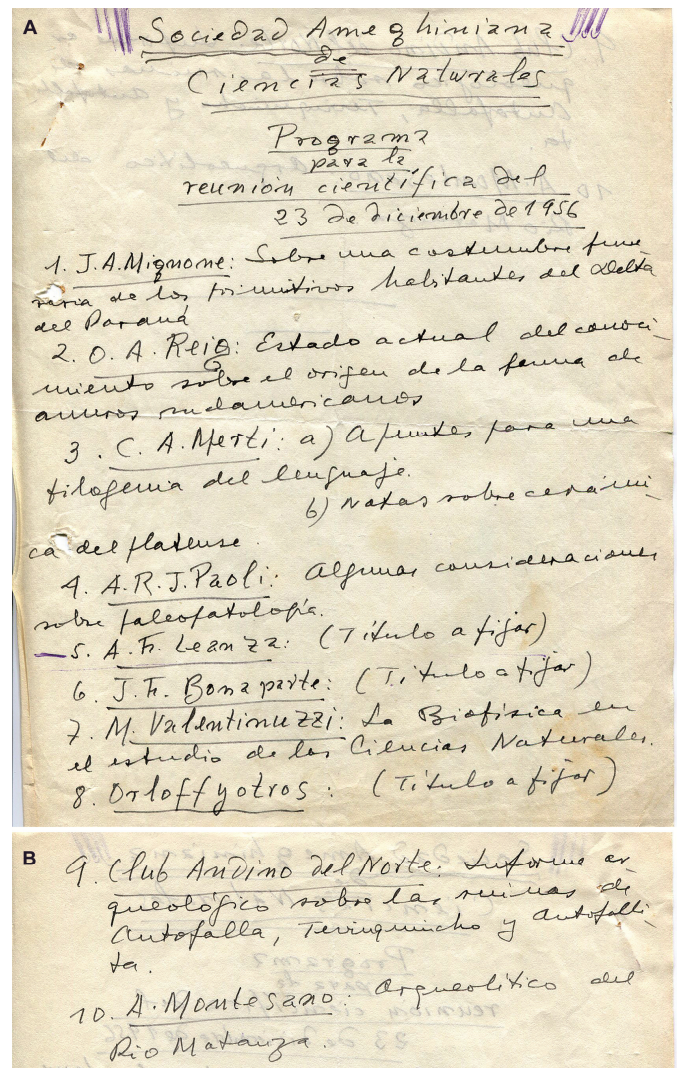 A
Sociedad Ameghiniana
de
Ciencias Naturales
Programa
para la
reunión científica del
23 de diciembre de 1956
1. J.A.Mignone: Sobre una costumbre fune-
raria de los primitivos habitantes del Delta
del Paraná
2. O. A. Reig: Estado actual del conoci-
miento sobre el origen de la fauna de
anuros sudamericanos
3. C. A. Merti: a) Apuntes para una
filogenia del lenguaje.
b) Notas sobre cerámi-
ca del platense.
4. A.R.J.Paoli: Algunas consideraciones
sobre paleopatología.
5. A. F. Leanza: (Título a fijar)
6. J. F. Bonaparte: (Título a fijar)
7. M. Valentinuzzi: La Biofísica en
el estudio de las Ciencias Naturales.
8. Orloff y otros: (Título a fijar)
B
9. Club Andino del Norte: Informe ar
queológico sobre las ruinas de
Antofalla, Tevinquincho y Antofalli-
ta.
10. A. Montesano: Arqueolítico del
Río Matanza.